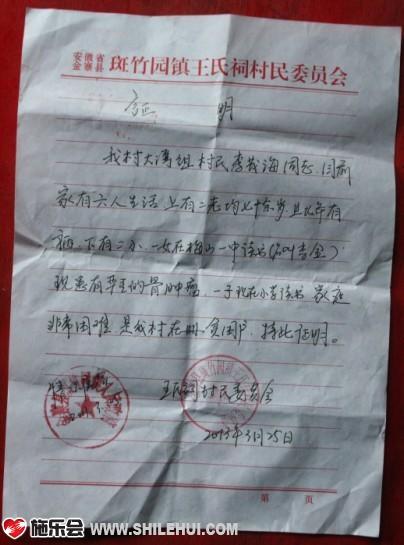 安徽省
金寨县 斑竹园镇王氏祠村民委员会
证 明
我村大湾组村民李家海同志,目前
家有六人生活,上有二老均七十余岁,且长年有
病,下有二小,一女在梅山一中读书(名叫李金)
现患有严重的骨肿瘤,一子现在小学读书,家庭
非常困难,是我村在册贫困户,特此证明。
王氏祠村民委员会
2013年3月25日
第 页
施乐会 WWW.SHILEHUI.COM